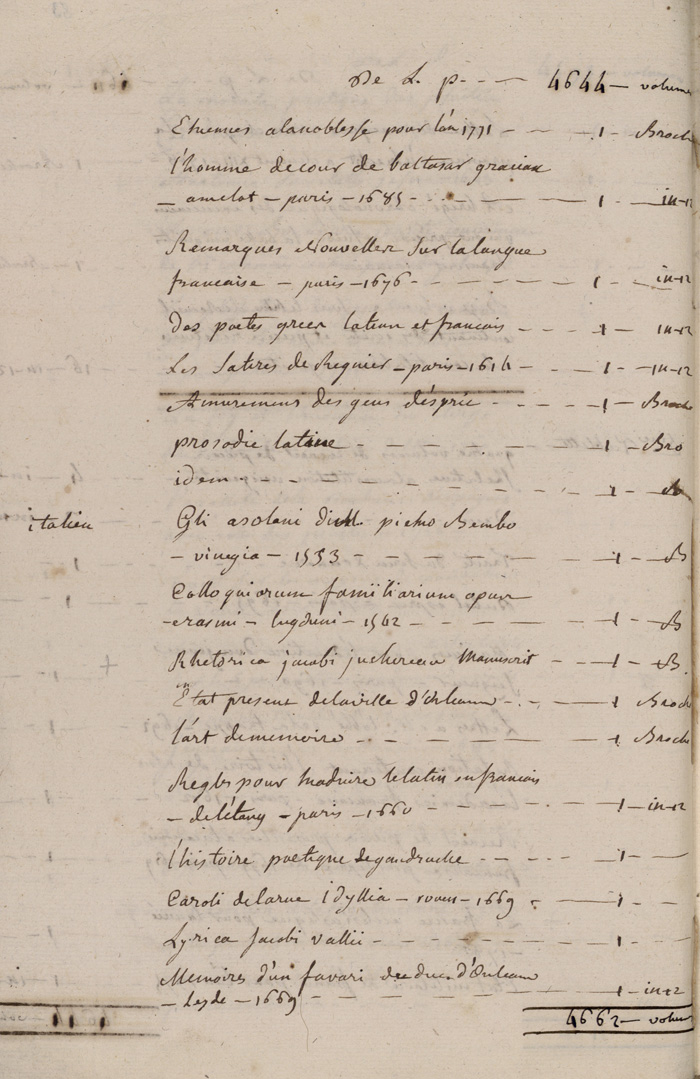 De L. p---- 4644 - volume
Etrennes alanoblesse pour l'an 1771 - - - 1 - Broch
l'homme decour de baltasar gracian
- amelot - paris - 1685 - - - 1 - in-12
Remarques Nouvelles Sur lalangue
francaise - paris - 1676 - - - 1 - in-12
Des poetes grecs latins et francois - - - 1 - in-12
Les Satires de Regnier - paris - 1614 - - - 1 - in-12
Amusemens des gens d'esprit - - - 1 - Broch
prosodie latine - - - 1 - Bro
idem - - - 1 - B
italien Gli asolani di M. pietro Bembo
- vinegia - 1553 - - - 1 - B
Colloquiorum familiarium opus
- erasmi - lugduni - 1542 - - - 1 - B
Rhetorica jacobi juchereau Manuscrit - - - 1 - B.
Etat present delaville d'orleans - - - 1 Broch
l'art dememoire - - - 1 Broch
Regles pour traduire lelatin enfrancois
- del'étang - paris - 1660 - - - 1 - in-12
l'histoire poetique degautruche - - - 1 -
Caroli delarue Idyllia - rouen - 1669 - - - 1 -
Lyrica Jacobi vallii - - - 1 -
Memoires d'un favari du duc d'Orleans
- Leyde - 1669 - - - 1 - in-12
4662 - volum